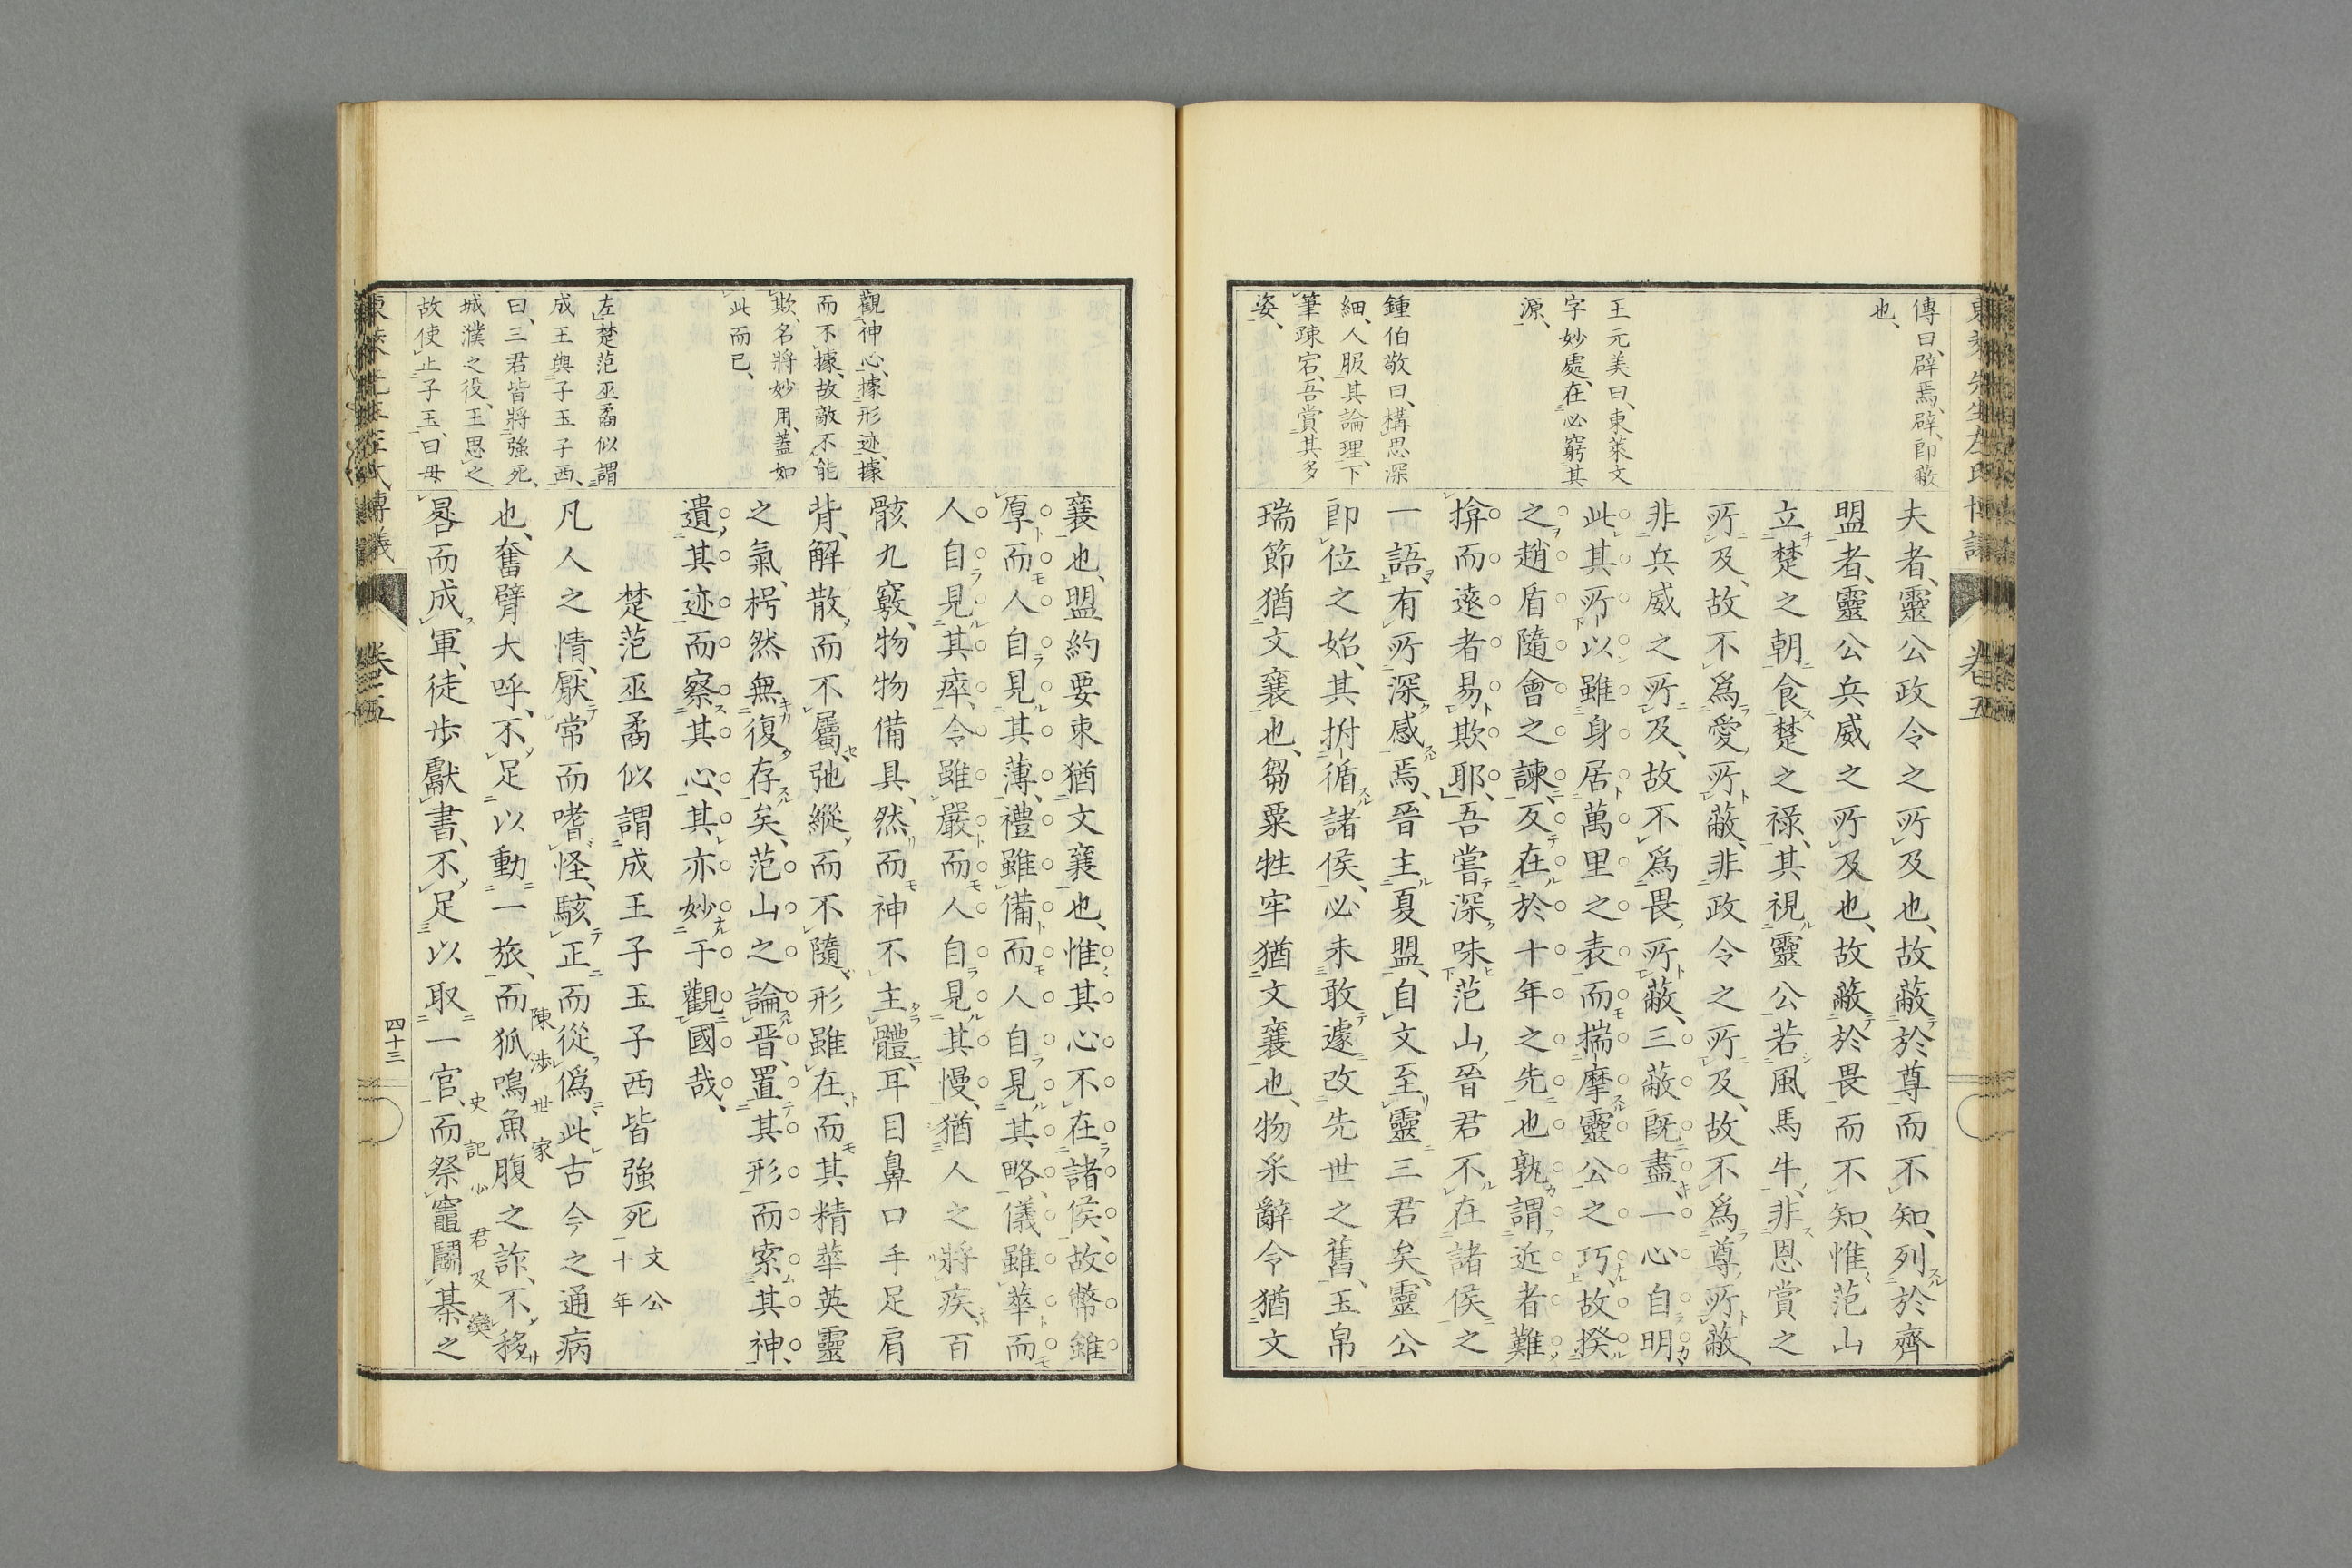 傳曰、辟焉、辟、卽蔽
也、
王元美曰、東萊文
字妙處、在必窮其
源、
鍾伯敬曰、構思深
細、人服其論理、下
筆踈宕、吾賞其多
姿、
夫者、靈公政令之所及也、故蔽於尊而不知、列於齊
盟者、靈公兵威之所及也、故蔽於畏而不知、惟范山
立楚之朝、食楚之祿、其視靈公若風馬牛、非恩賞之
所及、故不爲愛所蔽、非政令之所及、故不爲尊所蔽、
非兵威之所及、故不爲畏所蔽、三蔽旣盡、一心自明、
此其所以雖身居萬里之表、而揣摩靈公之巧、故揆
之趙盾隨會之諫、反在於十年之先也、孰謂近者難
揜而遠者易欺耶、吾嘗深味范山晉君不在諸侯之
一語、有所深感焉、晉主夏盟、自文至靈三君矣、靈公
卽位之始、其拊循諸侯、必未敢遽改先世之舊、玉帛
瑞節猶文襄也、芻粟牲牢猶文襄也、物采辭令猶文
卷五
觀神心、據形迹、據
而不據、故敵不能
欺、名將妙用、蓋如
此而已、
左楚范巫矞似謂
成王與子玉子西、
曰、三君皆將強死、
城濮之役、王思之
故使止子玉、曰毋
襄也、盟約要束猶文襄也、惟其心不在諸侯、故幣雖
厚而人自見其薄、禮雖備而人自見其略、儀雖華而
人自見其瘁、令雖嚴而人自見其慢、猶人之將疾、百
骸九竅、物物備具、然而神不主體、耳目鼻口手足肩
背、解散而不屬、弛縱而不隨、形雖在、而其精華英靈
之氣、枵然無復存矣、范山之論晉、置其形而索其神、
遺其迹而察其心、其亦妙于觀國哉、
楚范巫矞似謂成王子玉子西皆強死 文公
十年
凡人之情、厭常而嗜怪、駭正而從僞、此古今之通病
也、奮臂大呼、不足以動一旅、而狐鳴魚腹之詐、不移
陳渉世家
晷而成軍、徒步獻書、不足以取一官、而祭竈鬭棊之
史記少君及欒
卷之五
四十三